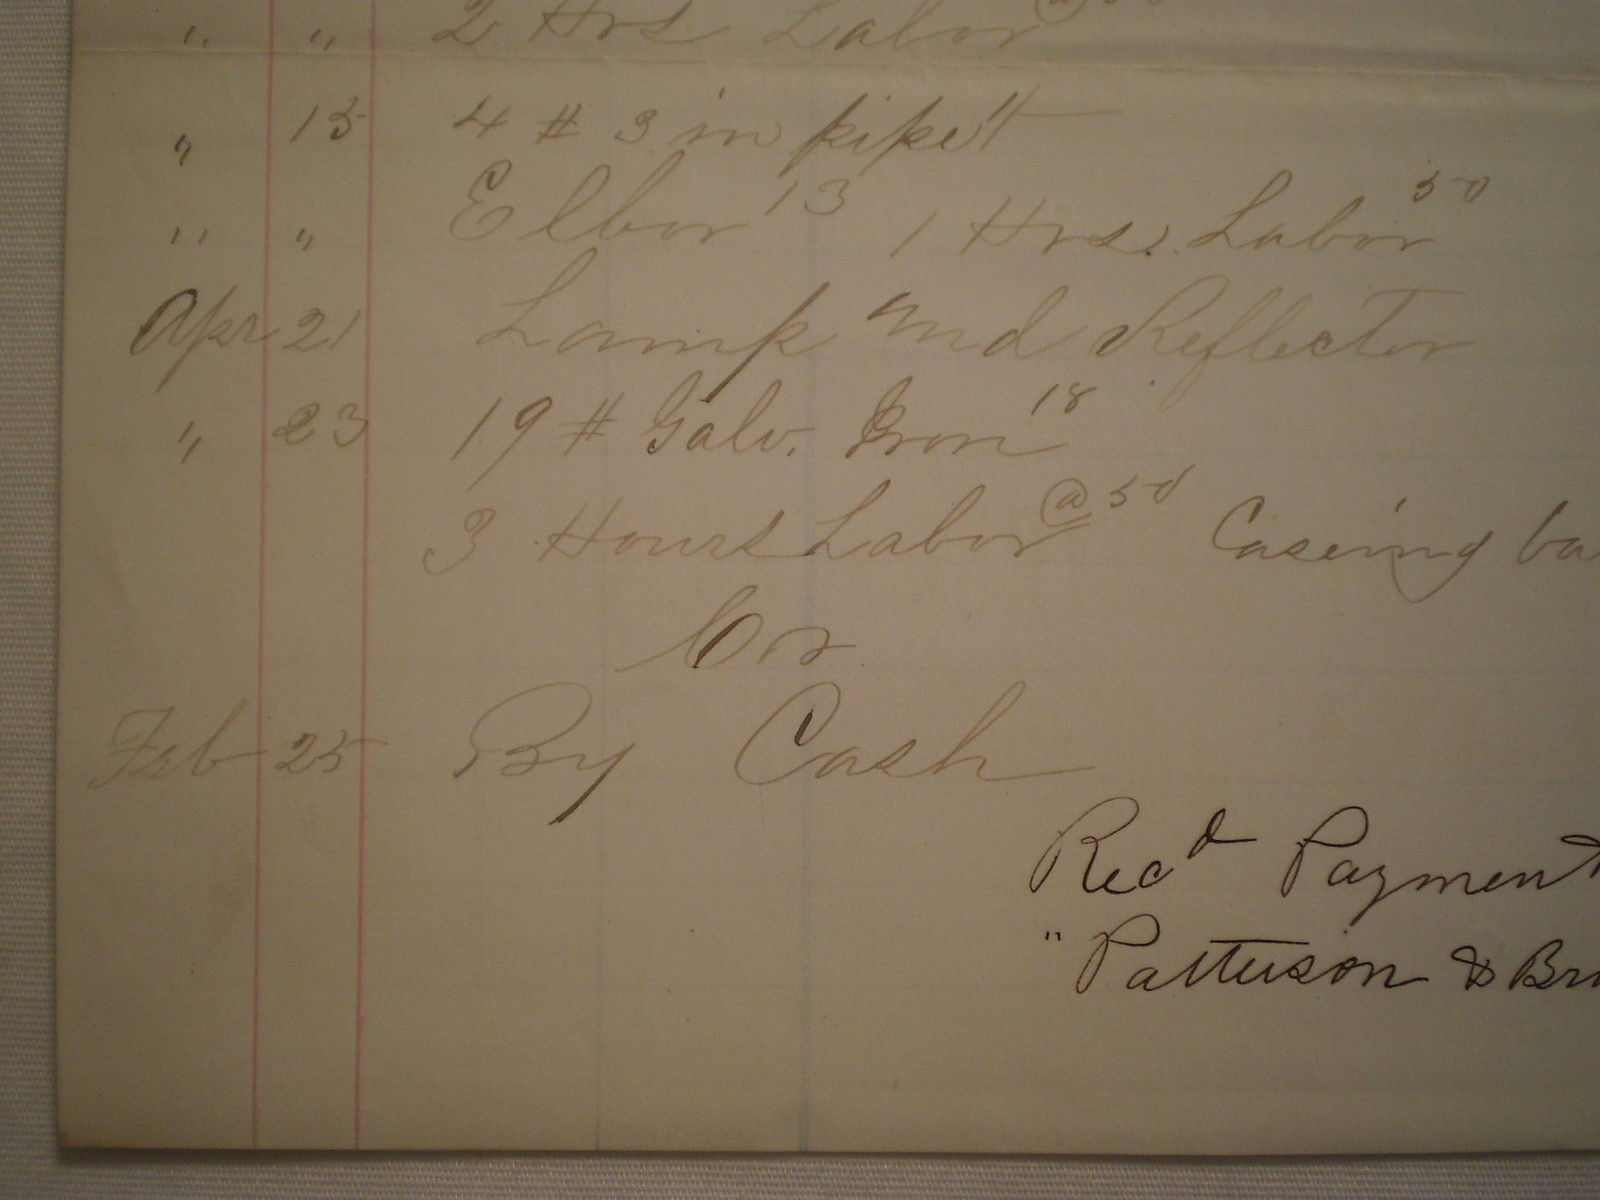 " " 2 Hrs Labor @ 50
" 15 4 # 3 in pipe 11
" " Elbor 13 1 Hrs. Labor 50
Apr 21 Lamp and Reflector
" 23 19 # Galv. Iron 18
3 Hours Labor @ 50 Caseing ba
Cr
Feb 25 By Cash
Recd Payment
" Patterson & Bro